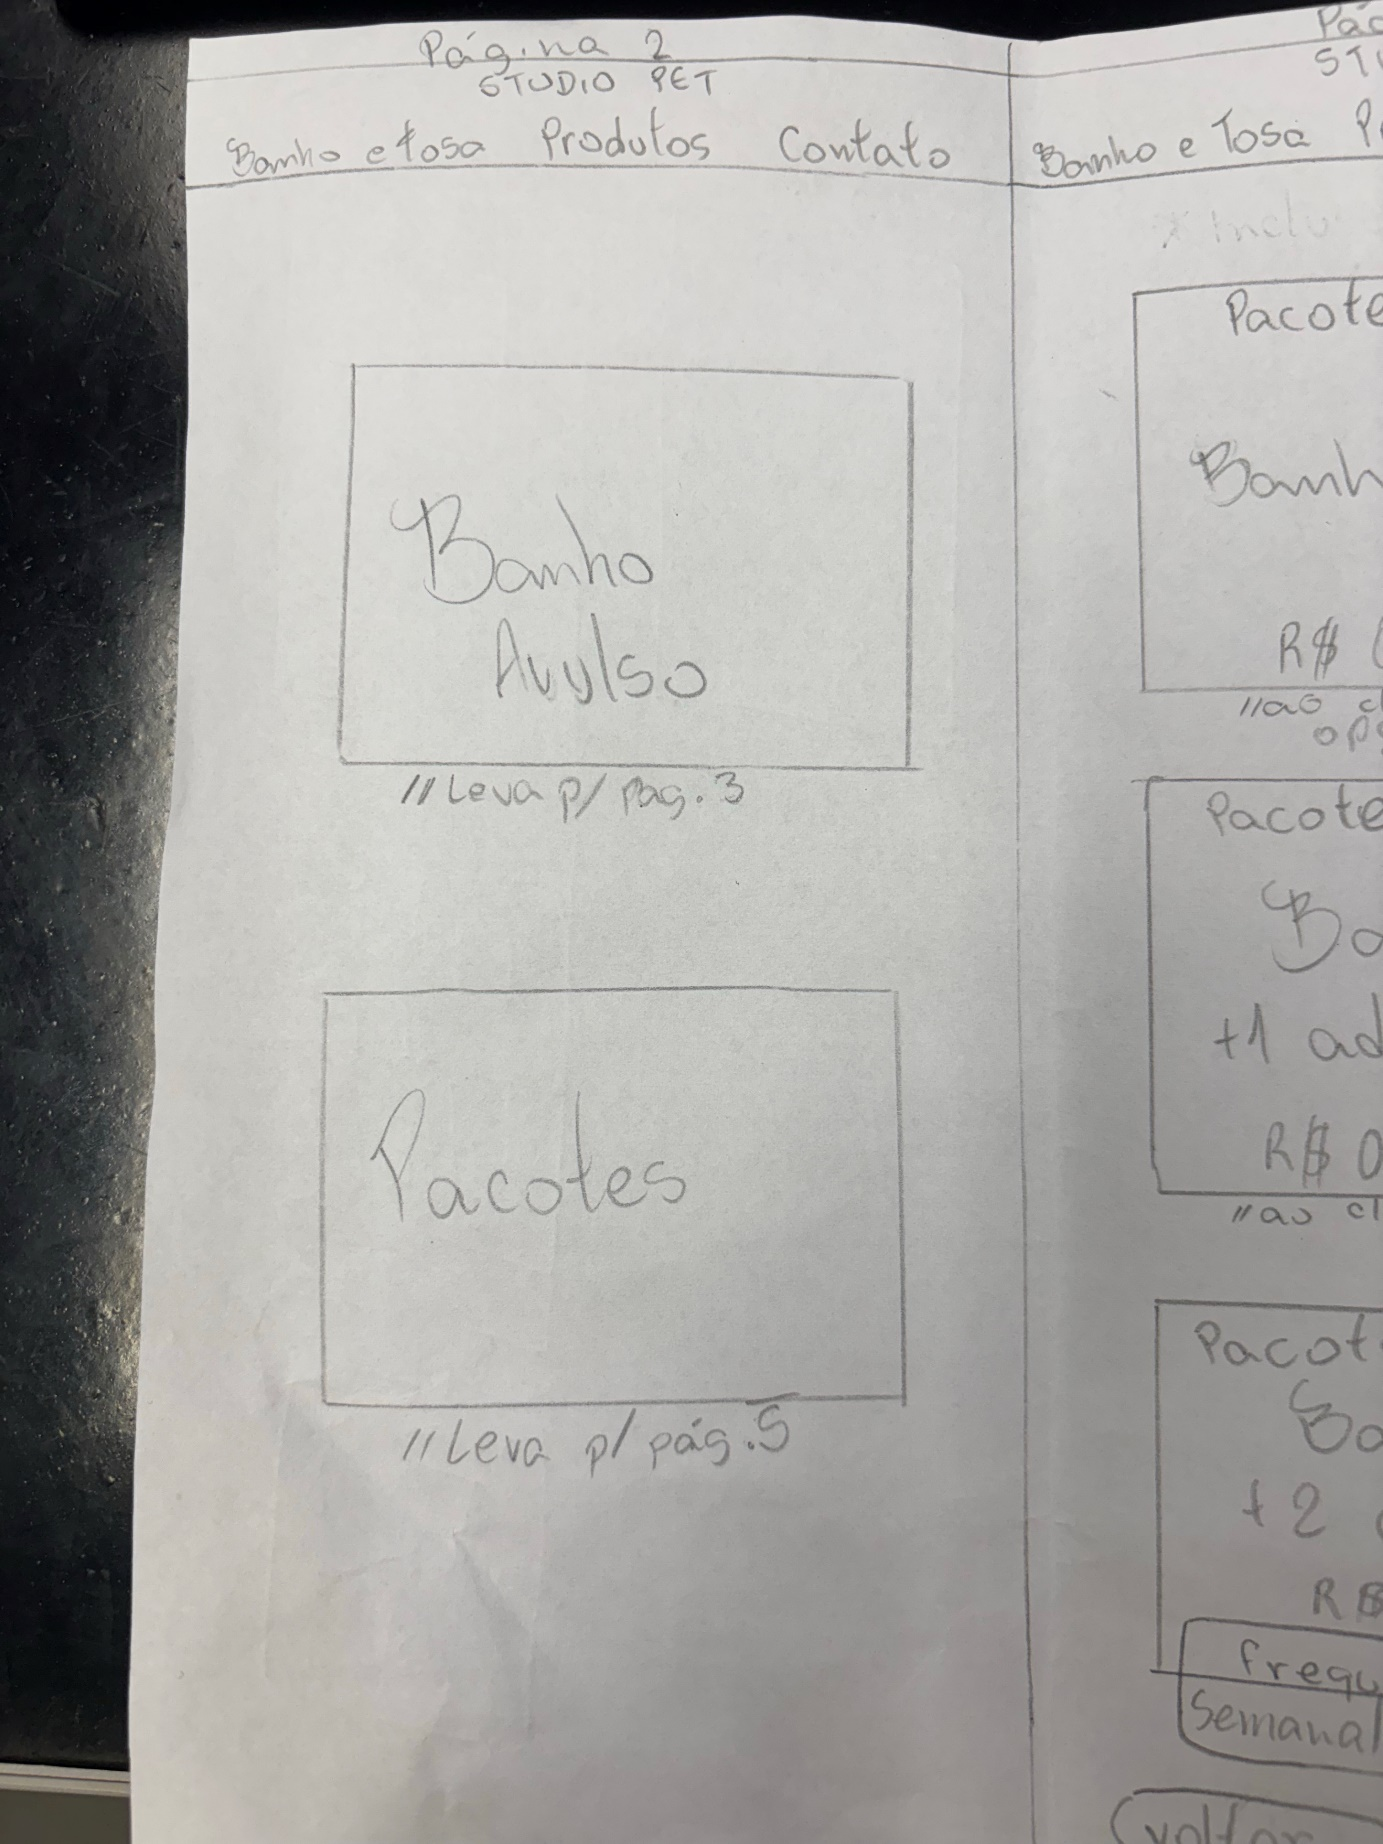 Página 2
STUDIO PET
Banho e tosa Produtos Contato
Banho
Avulso
// Leva p/ pag. 3
Pacotes
// Leva p/ pág. 5
STU
Banho e Tosa
Pacote
Banh
R$
// ao
Pacote
+1 ad
R$ 0
// ao cl
Pacot
+ 2
R$
frequ
Semanal
voltar